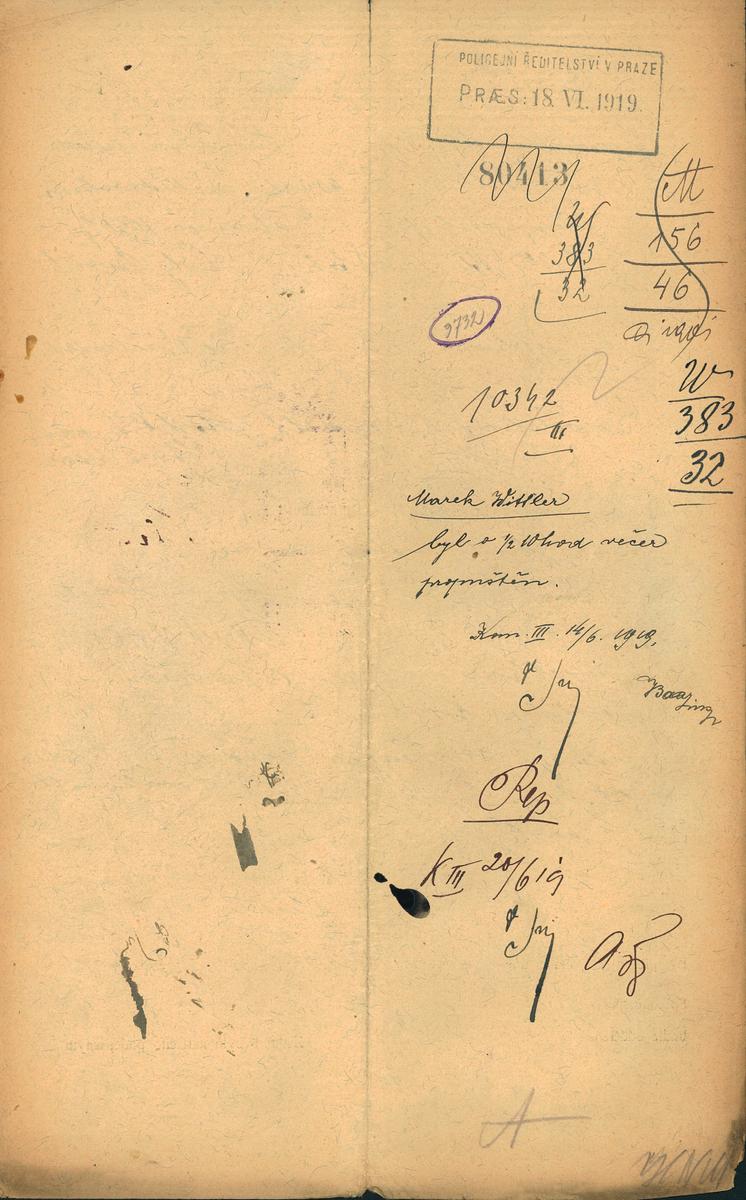 POLICEJNÍ ŘEDITELSTVÍ V PRAZE
PRÆS: 18. VI. 1919.
80413
M
156
46
383
32
9732
10342
III
W
383
32
Marek Wittler
byl o ½ 10 hod večer
propuštěn.
Kom. III. 14/6. 1919.
Rep
K III 20/6 19
A